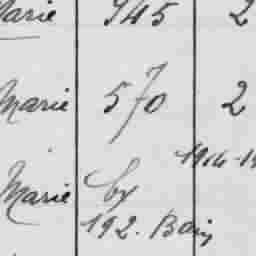 Marie 945 2
Marie 570 2
1914-19
Marie by
192. Bain